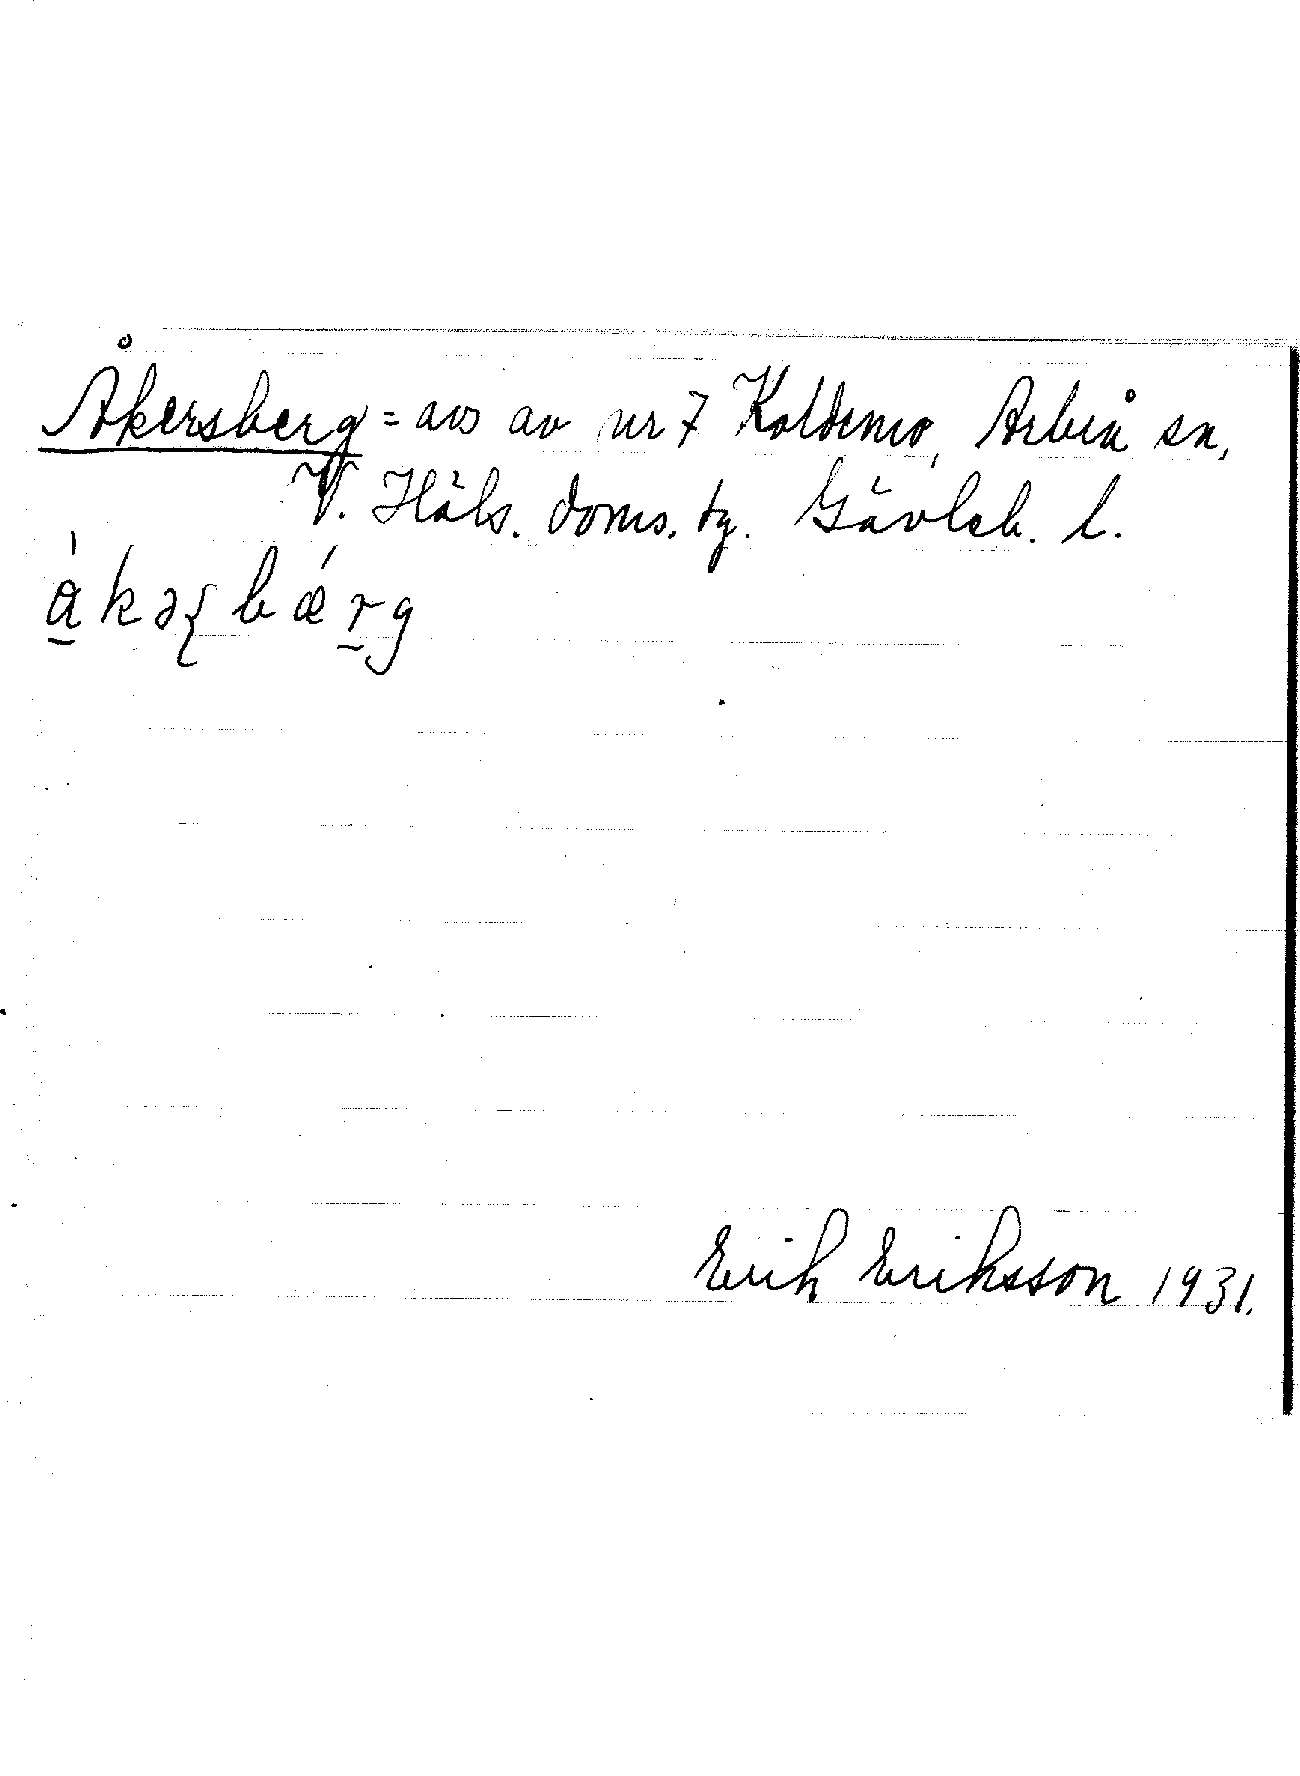 Åkersberg = avs av nr 7 Koldemo, Arbrå sn,
V. Häls. doms. tg. Gävleb. l.
Erik Eriksson 1931.